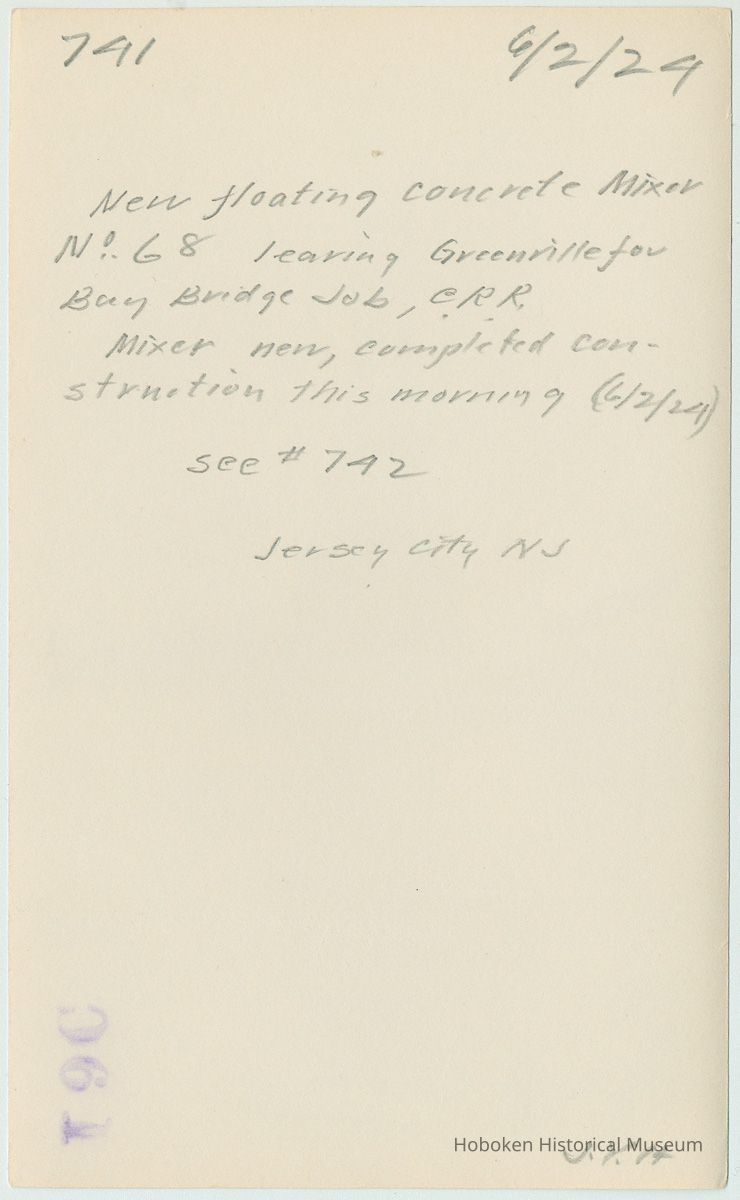 741 6/2/24
New floating concrete Mixer
No. 68 leaving Greenville for
Bay Bridge Job, C.R.R.
Mixer new, completed con-
struction this morning (6/2/24)
see # 742
Jersey City NJ
I9C
Hoboken Historical Museum